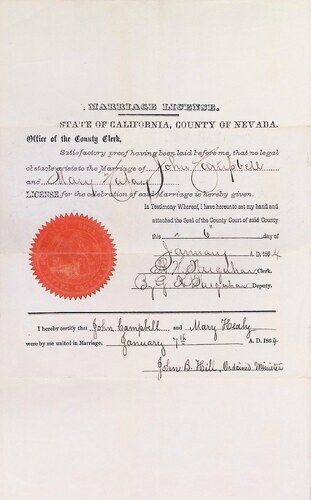 MARRIAGE LICENSE.
STATE OF CALIFORNIA, COUNTY OF NEVADA.
Office of the County Clerk,
Satisfactory proof having been laid before me, that no legal
obstacle exists to the Marriage of John Campbell
and Mary
LICENSE for the celebration of said Marriage is hereby given.
In Testimony Whereof, I have hereunto set my hand and
attached the Seal of the County Court of said County
this 6th day of
January A. D. 1864
Farquhar Clerk.
By G K Farquhar Deputy.
I hereby certify that John Campbell and Mary Healy
were by me united in Marriage. January 7th A. D. 1864
John B. Hill, Ordained Minister